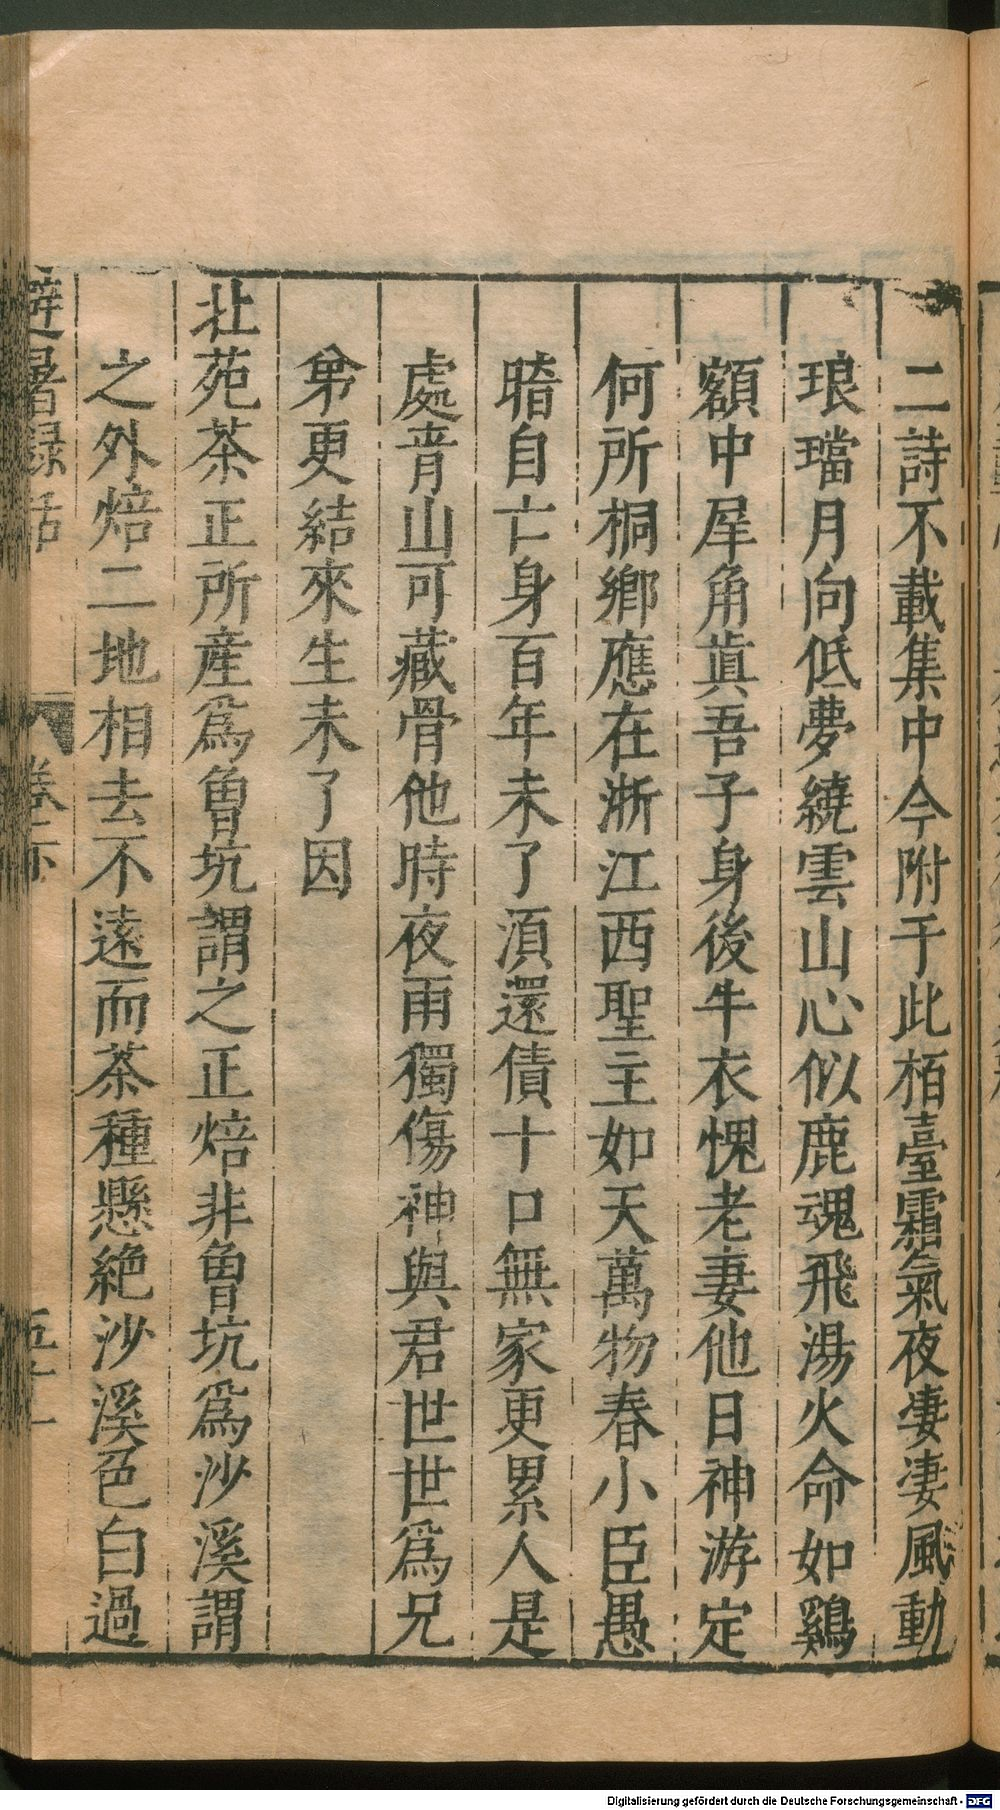 二詩不載集中今附于此栢臺霜氣夜凄凄風動
琅璫月向低夢繞雲山心似鹿魂飛湯火命如鷄
額中犀角眞吾子身後牛衣愧老妻他日神游定
何所桐鄉應在浙江西聖主如天萬物春小臣愚
暗自亡身百年未了湏還債十口無家更累人是
處青山可藏骨他時夜雨獨傷神與君世世爲兄
弟更結來生未了因
壯苑茶正所産爲魯坑謂之正焙非魯坑爲沙溪謂
之外焙二地相去不遠而茶種懸絶沙溪色白過
避暑録話 卷下 五十一
Digitalisierung gefördert durch die Deutsche Forschungsgemeinschaft - DFG